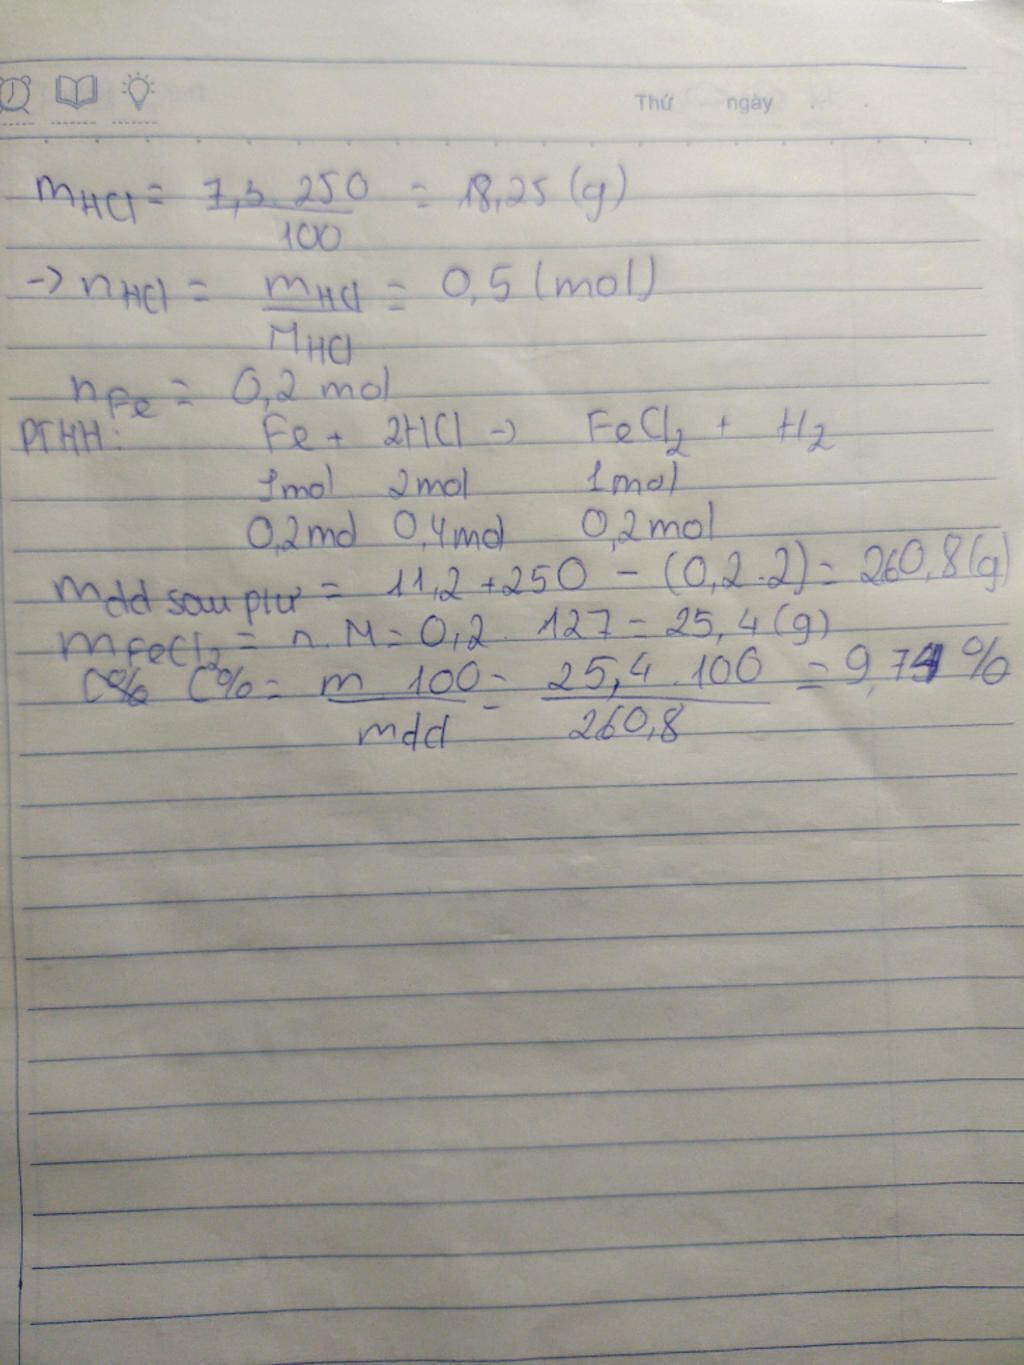 Thứ ngày
mHCl = 7,3.250/100 = 18,25 (g)
-> nHCl = mHCl/MHCl = 0,5 (mol)
nFe = 0,2 mol
PTHH: Fe + 2HCl -> FeCl2 + H2
1mol 2mol 1mol
0,2mol 0,4mol 0,2mol
mdd sau pứ = 11,2+250 - (0,2.2) = 260,8(g)
mFeCl2 = n.M = 0,2.127 = 25,4(g)
C% C% = m.100/mdd = 25,4.100/260,8 = 9,74%